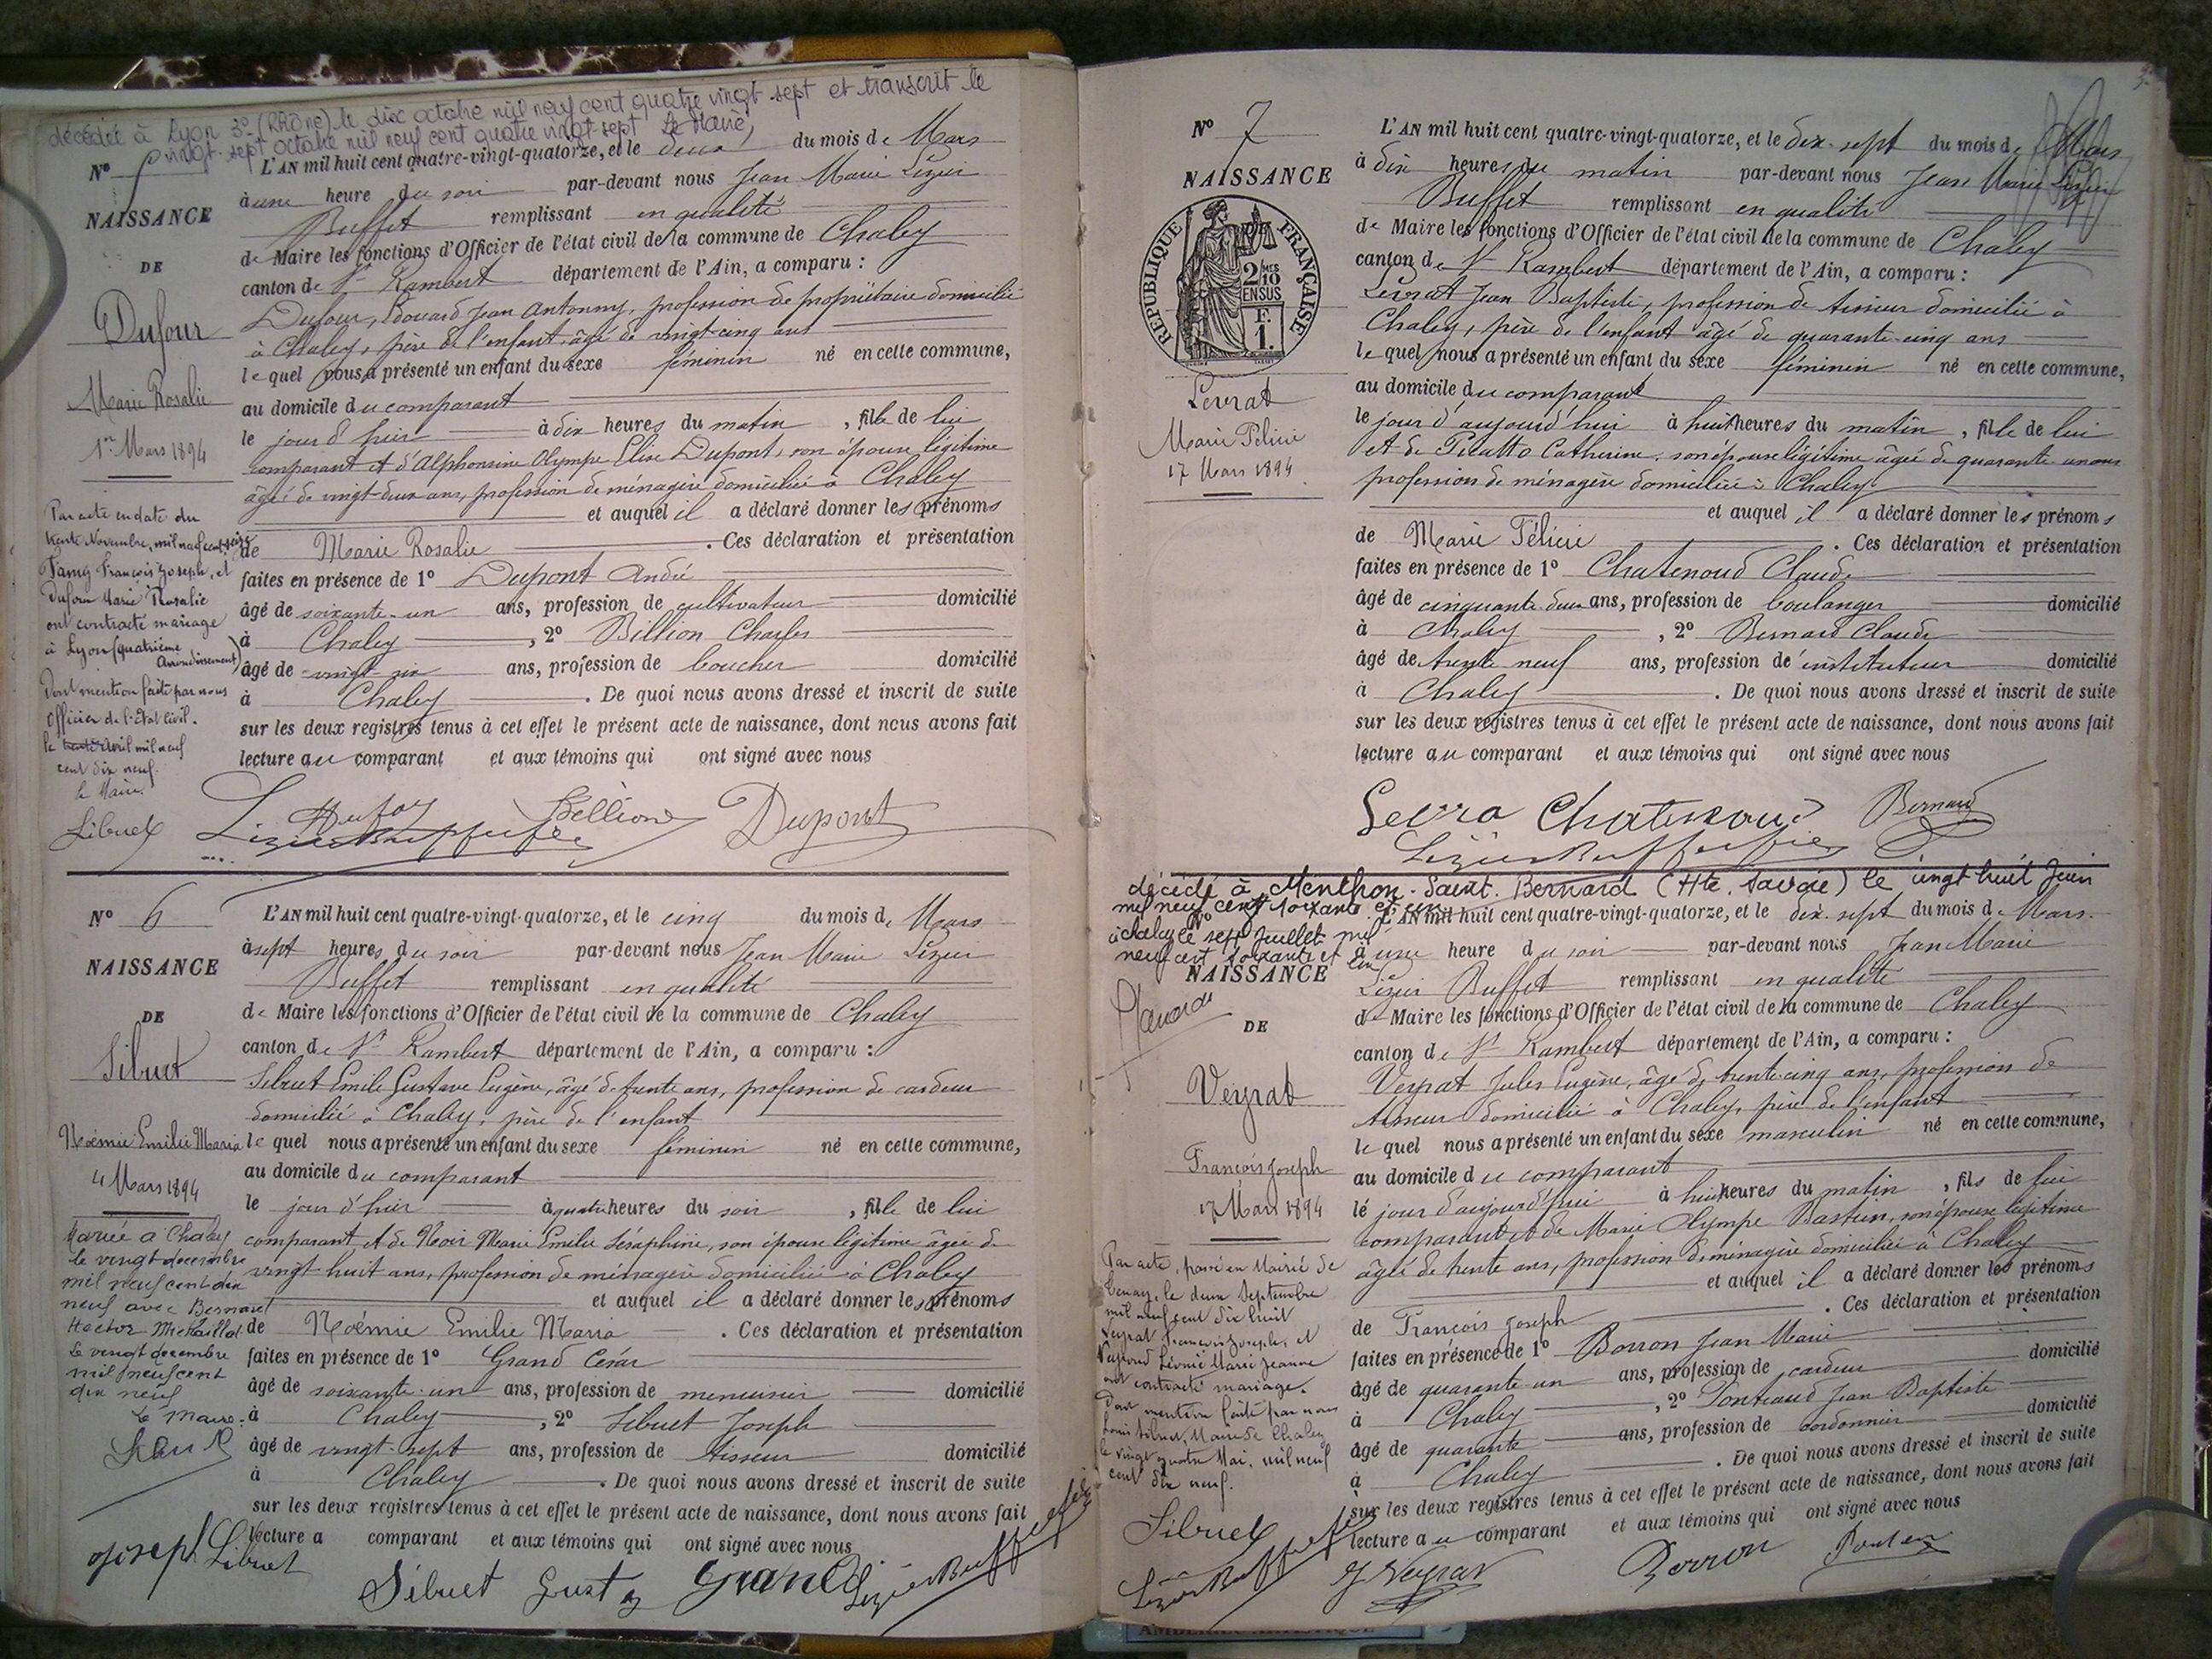 décédée à Lyon 3e (Rhône) le dix octobre mil neuf cent quatre vingt sept et transcrit le
vingt-sept octobre mil neuf cent quatre vingt-sept Le Maire,
No 5
NAISSANCE
DE
Dufour
Marie Rosalie
1er Mars 1894
Par acte en date du
trente Novembre, mil neuf cent seize
François Joseph, et
Dufour Marie Rosalie
ont contracté mariage
à Lyon (quatrième
Arrondissement)
Dont mention faite par nous
Officier de l'Etat Civil.
le trente Avril mil neuf
cent dix neuf.
le Maire.
Sibuet
L'AN mil huit cent quatre-vingt-quatorze, et le deux du mois de Mars
à une heure du soir par-devant nous Jean Marie Lizier
Buffet remplissant en qualité
de Maire les fonctions d'Officier de l'état civil de la commune de Chaley
canton de St Rambert département de l'Ain, a comparu :
Dufour, Edouard Jean Antonny, profession de propriétaire domicilié
à Chaley, père de l'enfant âgé de vingt-cinq ans
lequel nous a présenté un enfant du sexe féminin né en cette commune,
au domicile du comparant
le jour d'hier à dix heures du matin, fille de lui
comparant et d'Alphonsine Olympe Elise Dupont, son épouse légitime
âgée de vingt-deux ans, profession de ménagère domiciliée à Chaley
et auquel il a déclaré donner les prénoms
de Marie Rosalie. Ces déclaration et présentation
faites en présence de 1o Dupont André
âgé de soixante-un ans, profession de cultivateur domicilié
à Chaley, 2o Billion Charles
âgé de vingt-six ans, profession de boucher domicilié
à Chaley. De quoi nous avons dressé et inscrit de suite
sur les deux registres tenus à cet effet le présent acte de naissance, dont nous avons fait
lecture au comparant et aux témoins qui ont signé avec nous
Billion Dupont
No 6
NAISSANCE
DE
Sibuet
Noémie Emilie Maria
4 Mars 1894
Mariée à Chaley
le vingt decembre
mil neuf cent dix
neuf avec Bernard
Hector
Le vingt decembre
mil neuf cent
dix neuf
Le Maire:
L'AN mil huit cent quatre-vingt-quatorze, et le cinq du mois de Mars
à sept heures du soir par-devant nous Jean Marie Lizier
Buffet remplissant en qualité
de Maire les fonctions d'Officier de l'état civil de la commune de Chaley
canton de St Rambert département de l'Ain, a comparu :
Sibuet Emile Gustave Eugène, âgé de trente ans, profession de cardeur
domicilié à Chaley, père de l'enfant
lequel nous a présenté un enfant du sexe féminin né en cette commune,
au domicile du comparant
le jour d'hier à quatre heures du soir, fille de lui
comparant, et de Noir Marie Emilie Séraphine, son épouse légitime âgée de
vingt-huit ans, profession de ménagère domiciliée à Chaley
et auquel il a déclaré donner les prénoms
de Noémie Emilie Maria. Ces déclaration et présentation
faites en présence de 1o Grand César
âgé de soixante-un ans, profession de menuisier domicilié
à Chaley, 2o Sibuet Joseph
âgé de vingt-sept ans, profession de tisseur domicilié
à Chaley. De quoi nous avons dressé et inscrit de suite
sur les deux registres tenus à cet effet le présent acte de naissance, dont nous avons fait
lecture a comparant et aux témoins qui ont signé avec nous
joseph Sibuet Sibuet Grand Lizier Buffet
No 7
NAISSANCE
RÉPUBLIQUE FRANÇAISE
2/10 MES
EN SUS
F.
1.
Levrat
Marie Félicie
17 Mars 1894
L'AN mil huit cent quatre-vingt-quatorze, et le dix-sept du mois de Mars
à dix heures du matin par-devant nous Jean Marie Lizier
Buffet remplissant en qualité
de Maire les fonctions d'Officier de l'état civil de la commune de Chaley
canton de St Rambert département de l'Ain, a comparu :
Levrat Jean Baptiste, profession de tisseur domicilié à
Chaley, père de l'enfant âgé de quarante-cinq ans
lequel nous a présenté un enfant du sexe féminin né en cette commune,
au domicile du comparant
le jour d'aujourd'hui à huit heures du matin, fille de lui
et de Catherine, son épouse légitime âgée de quarante-un ans
profession de ménagère domiciliée à Chaley
et auquel il a déclaré donner les prénoms
de Marie Félicie. Ces déclaration et présentation
faites en présence de 1o Chatenoud Claude
âgé de cinquante-deux ans, profession de boulanger domicilié
à Chaley, 2o Bernard Claude
âgé de trente neuf ans, profession de instituteur domicilié
à Chaley. De quoi nous avons dressé et inscrit de suite
sur les deux registres tenus à cet effet le présent acte de naissance, dont nous avons fait
lecture au comparant et aux témoins qui ont signé avec nous
Levra Chatenoud Bernard
décédé à Menthon-Saint-Bernard (Hte Savoie) le vingt huit Juin
mil neuf cent soixante et un.
à Chaley le sept Juillet mil
neuf cent soixante et un
No
NAISSANCE
DE
Veyrat
François Joseph
17 Mars 1894
Par acte, passé en Mairie de
Tenay, le deux Septembre
mil neuf cent dix huit
Veyrat François Joseph, et
Léonie Marie Jeanne
ont contracté mariage.
Dont mention faite par nous
Louis Sibuet, Maire de Chaley
le vingt quatre Mai, mil neuf
cent dix neuf.
Sibuet
L'AN mil huit cent quatre-vingt-quatorze, et le dix-sept du mois de Mars.
à une heure du soir par-devant nous Jean Marie
Lizier Buffet remplissant en qualité
de Maire les fonctions d'Officier de l'état civil de la commune de Chaley
canton de St Rambert département de l'Ain, a comparu :
Veyrat Jules Eugène, âgé de trente-cinq ans, profession de
tisseur domicilié à Chaley, père de l'enfant
lequel nous a présenté un enfant du sexe masculin né en cette commune,
au domicile du comparant
le jour d'aujourd'hui à huit heures du matin, fils de lui
comparant et de Marie Olympe Bastien, son épouse légitime
âgée de trente ans, profession de ménagère domiciliée à Chaley
et auquel il a déclaré donner les prénoms
de François Joseph. Ces déclaration et présentation
faites en présence de 1o Borron Jean Marie
âgé de quarante-un ans, profession de cardeur domicilié
à Chaley, 2o Jean Baptiste
âgé de quarante ans, profession de cordonnier domicilié
à Chaley. De quoi nous avons dressé et inscrit de suite
sur les deux registres tenus à cet effet le présent acte de naissance, dont nous avons fait
lecture au comparant et aux témoins qui ont signé avec nous
Lizier Buffet Veyrat Borron